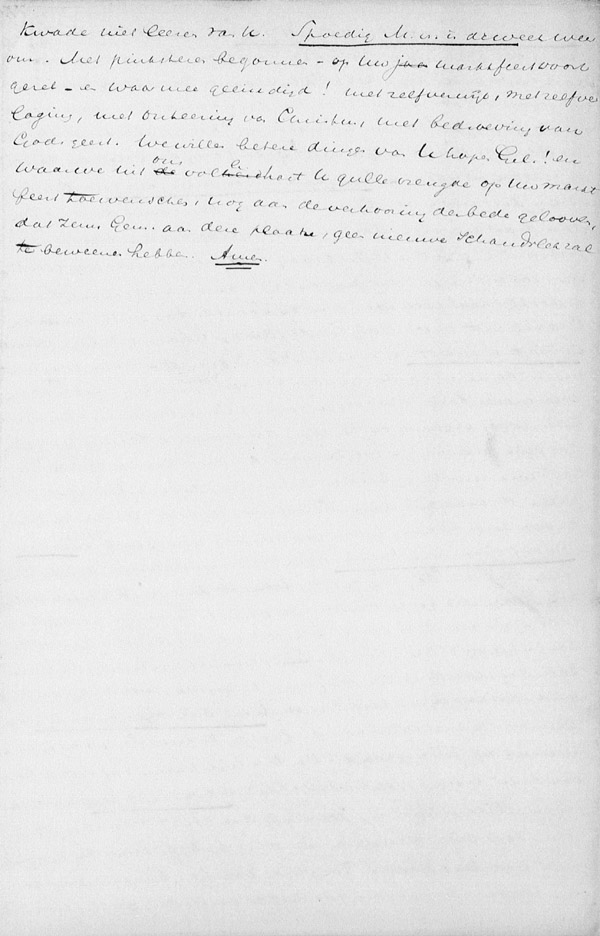 Kwade niet leeren van U. Spoedig M. v. i. de week weer
om. Met pinksteren begonnen – op Uw marktfeest voort
gezet – en waar mee geeindigd! met zelfverwijt, met zelfver
laging, met onteering van Christus, met bedroeving van
Gods geest. We willen betere dingen van U hopen Gel.! en
waar we uit ons volle hart U gulle vreugde op Uw markt
feest toewenschen, nog aan de verhooring der bede gelooven,
dat Jezus Gem. aan deze plaats, geen nieuwe schandvlek zal
te beweenen hebben. Amen.